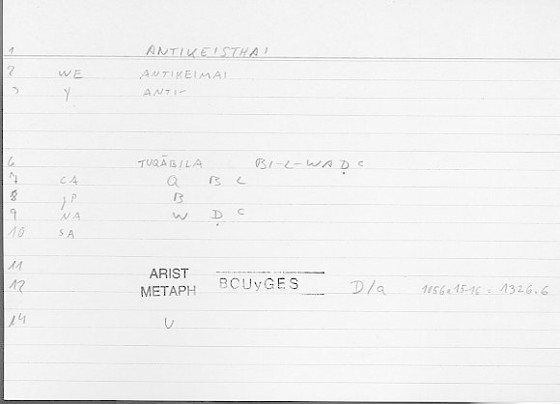 1 ANTIKEISTHAI
2 WE ANTIKEIMAI
3 Y ANTI-
6 TUQĀBILA BI-L-WAḌ c
7 CA Q B L
8 JP B
9 NA W Ḍ c
10 SA
11 ARIST
12 METAPH BOUyGES D/a 1056a15-16 = 1326.6
14 V